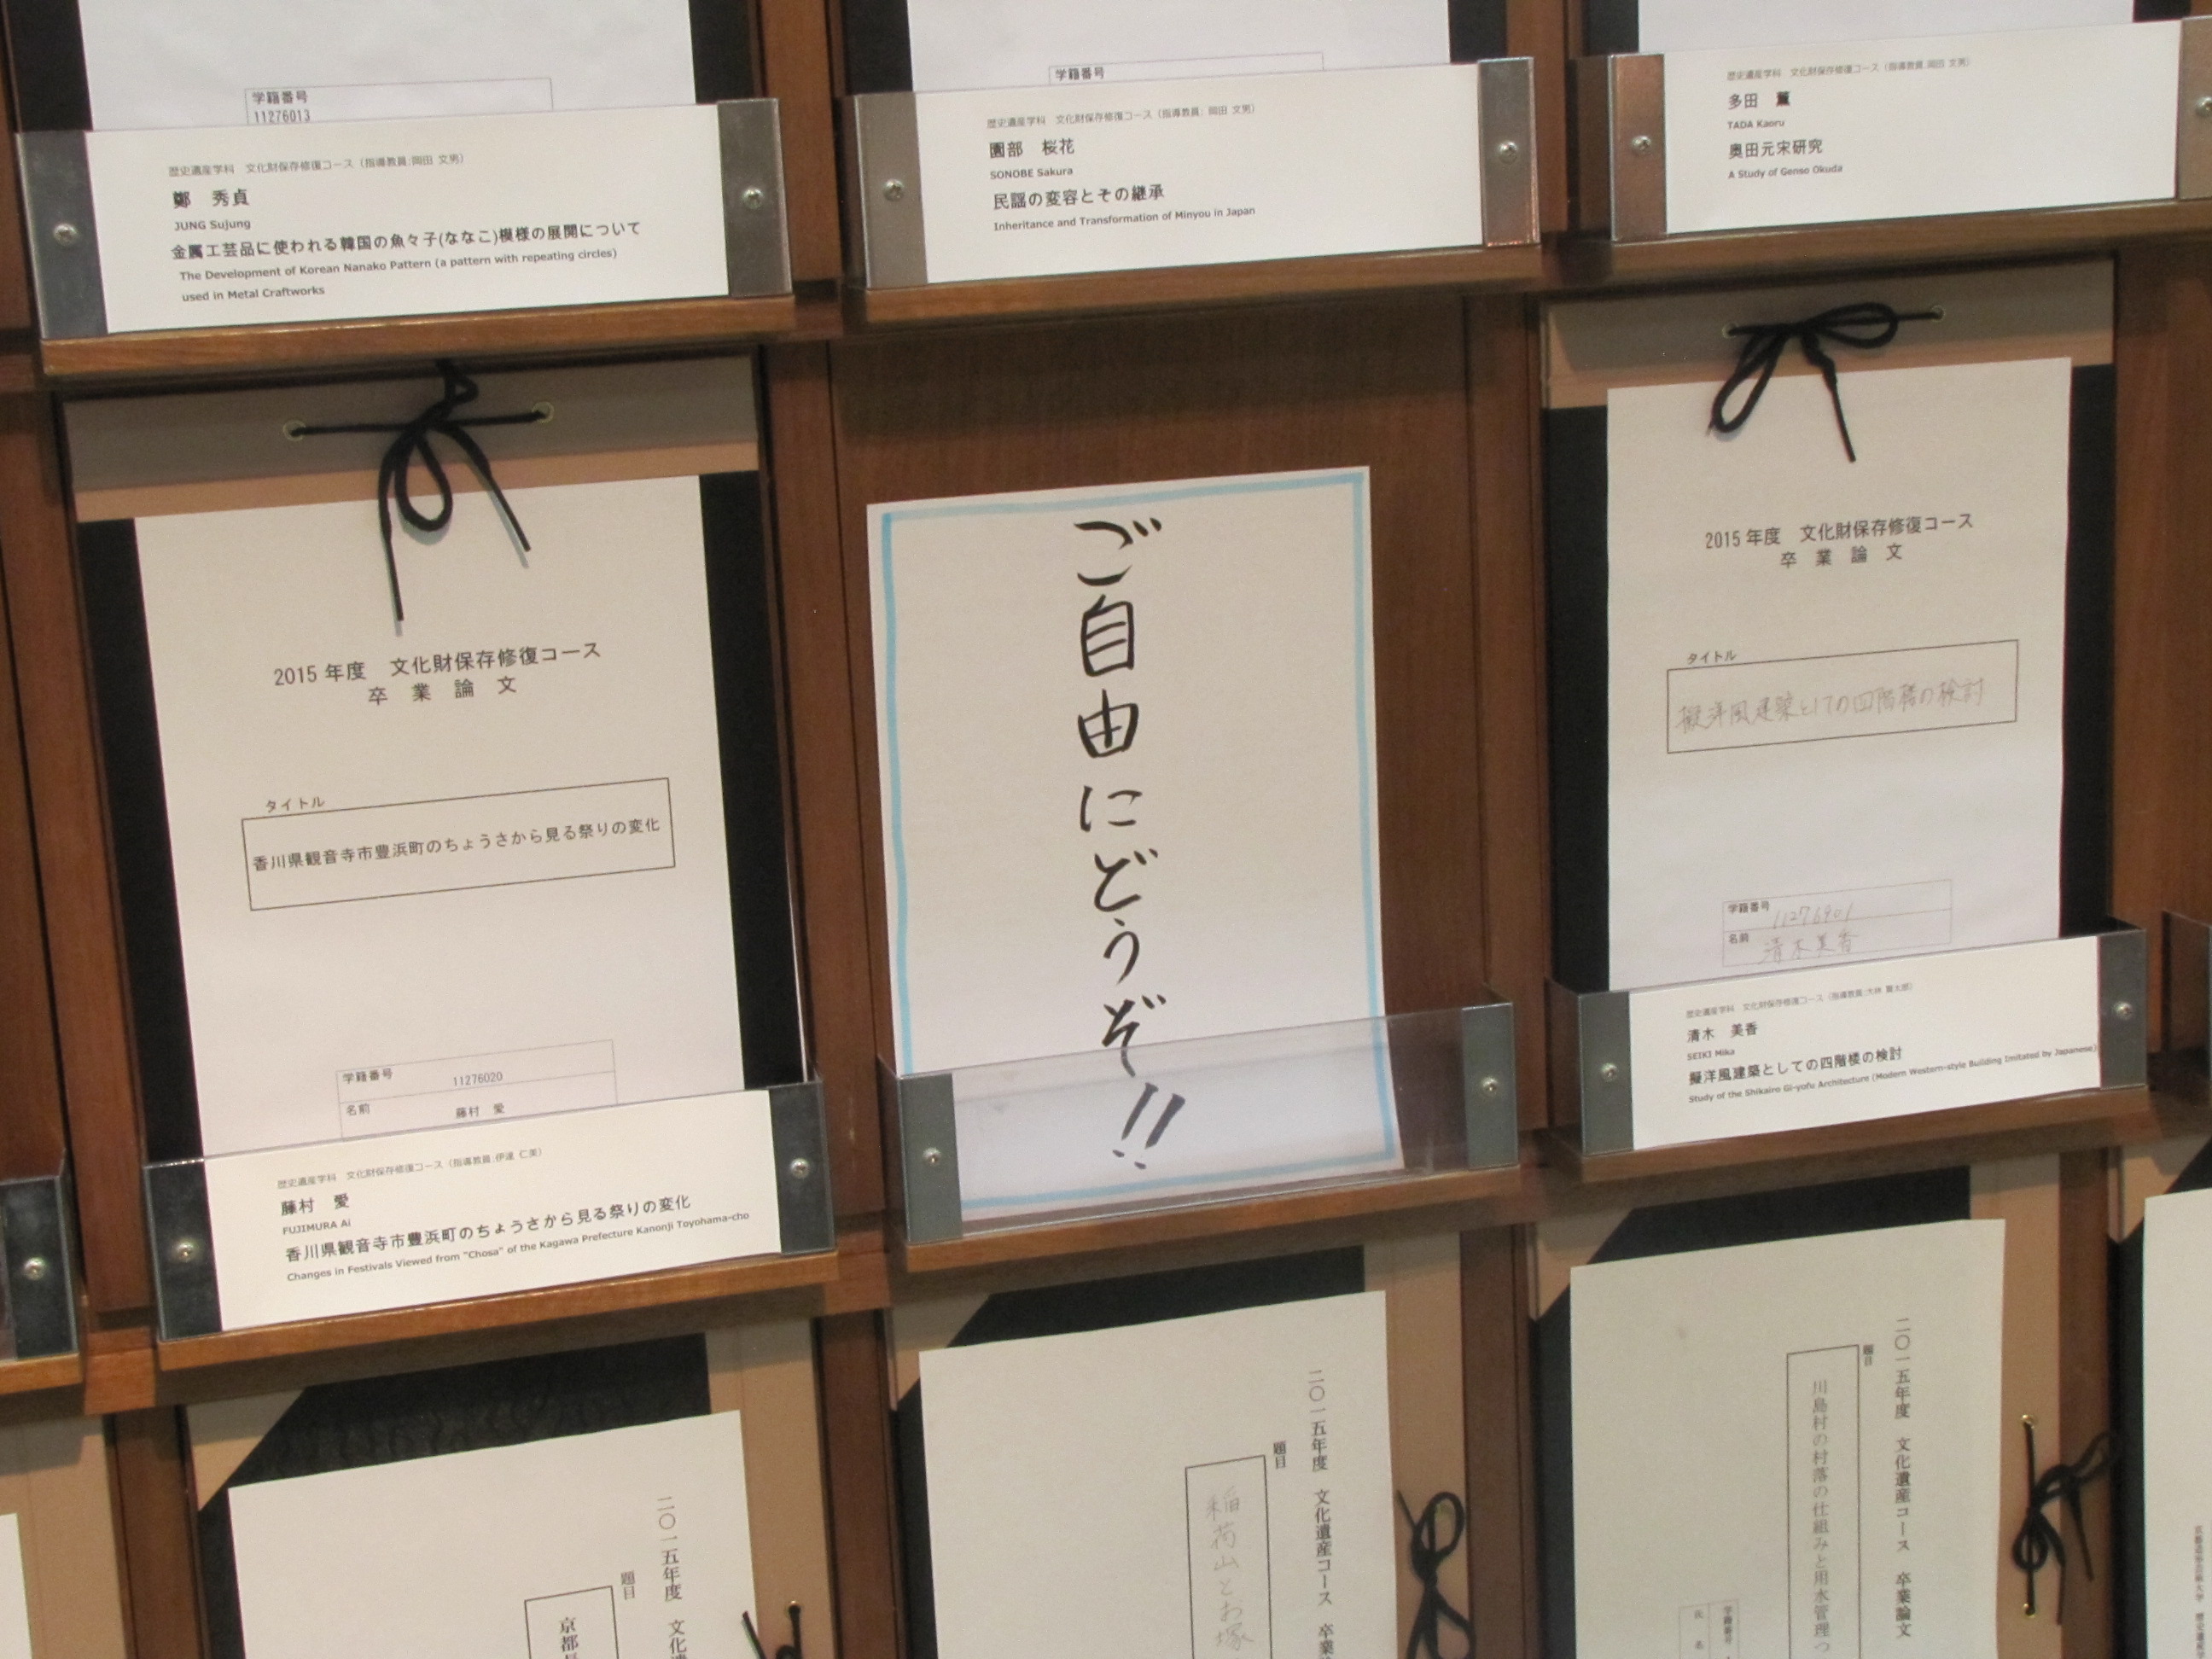 学籍番号
11276013
歴史遺産学科 文化財保存修復コース（指導教員:岡田 文男）
鄭 秀貞
JUNG Sujung
金属工芸品に使われる韓国の魚々子(ななこ)模様の展開について
The Development of Korean Nanako Pattern (a pattern with repeating circles)
used in Metal Craftworks
学籍番号
歴史遺産学科 文化財保存修復コース（指導教員: 岡田 文男）
園部 桜花
SONOBE Sakura
民謡の変容とその継承
Inheritance and Transformation of Minyou in Japan
歴史遺産学科 文化財保存修復コース（指導教員:岡田 文男）
多田 薫
TADA Kaoru
奥田元宋研究
A Study of Genso Okuda
2015 年度 文化財保存修復コース
卒業論文
タイトル
香川県観音寺市豊浜町のちょうさから見る祭りの変化
学籍番号 11276020
名前 藤村 愛
歴史遺産学科 文化財保存修復コース（指導教員:伊達 仁美）
藤村 愛
FUJIMURA Ai
香川県観音寺市豊浜町のちょうさから見る祭りの変化
Changes in Festivals Viewed from "Chosa" of the Kagawa Prefecture Kanonji Toyohama-cho
ご自由にどうぞ!!
2015 年度 文化財保存修復コース
卒業論文
タイトル
擬洋風建築としての四階楼の検討
学籍番号 11276901
名前 清木美香
歴史遺産学科 文化財保存修復コース
清木 美香
SEIKI Mika
擬洋風建築としての四階楼の検討
Study of the Shikairo Gi-yofu Architecture (Modern Western-style Building Imitated by Japanese)
二〇一五年度 文化
題目
京都
二〇一五年度 文化遺産コース 卒業
題目
稲荷山とお塚
二〇一五年度 文化遺産コース 卒業論文
題目
川島村の村落の仕組みと用水管理
学籍番号
氏名